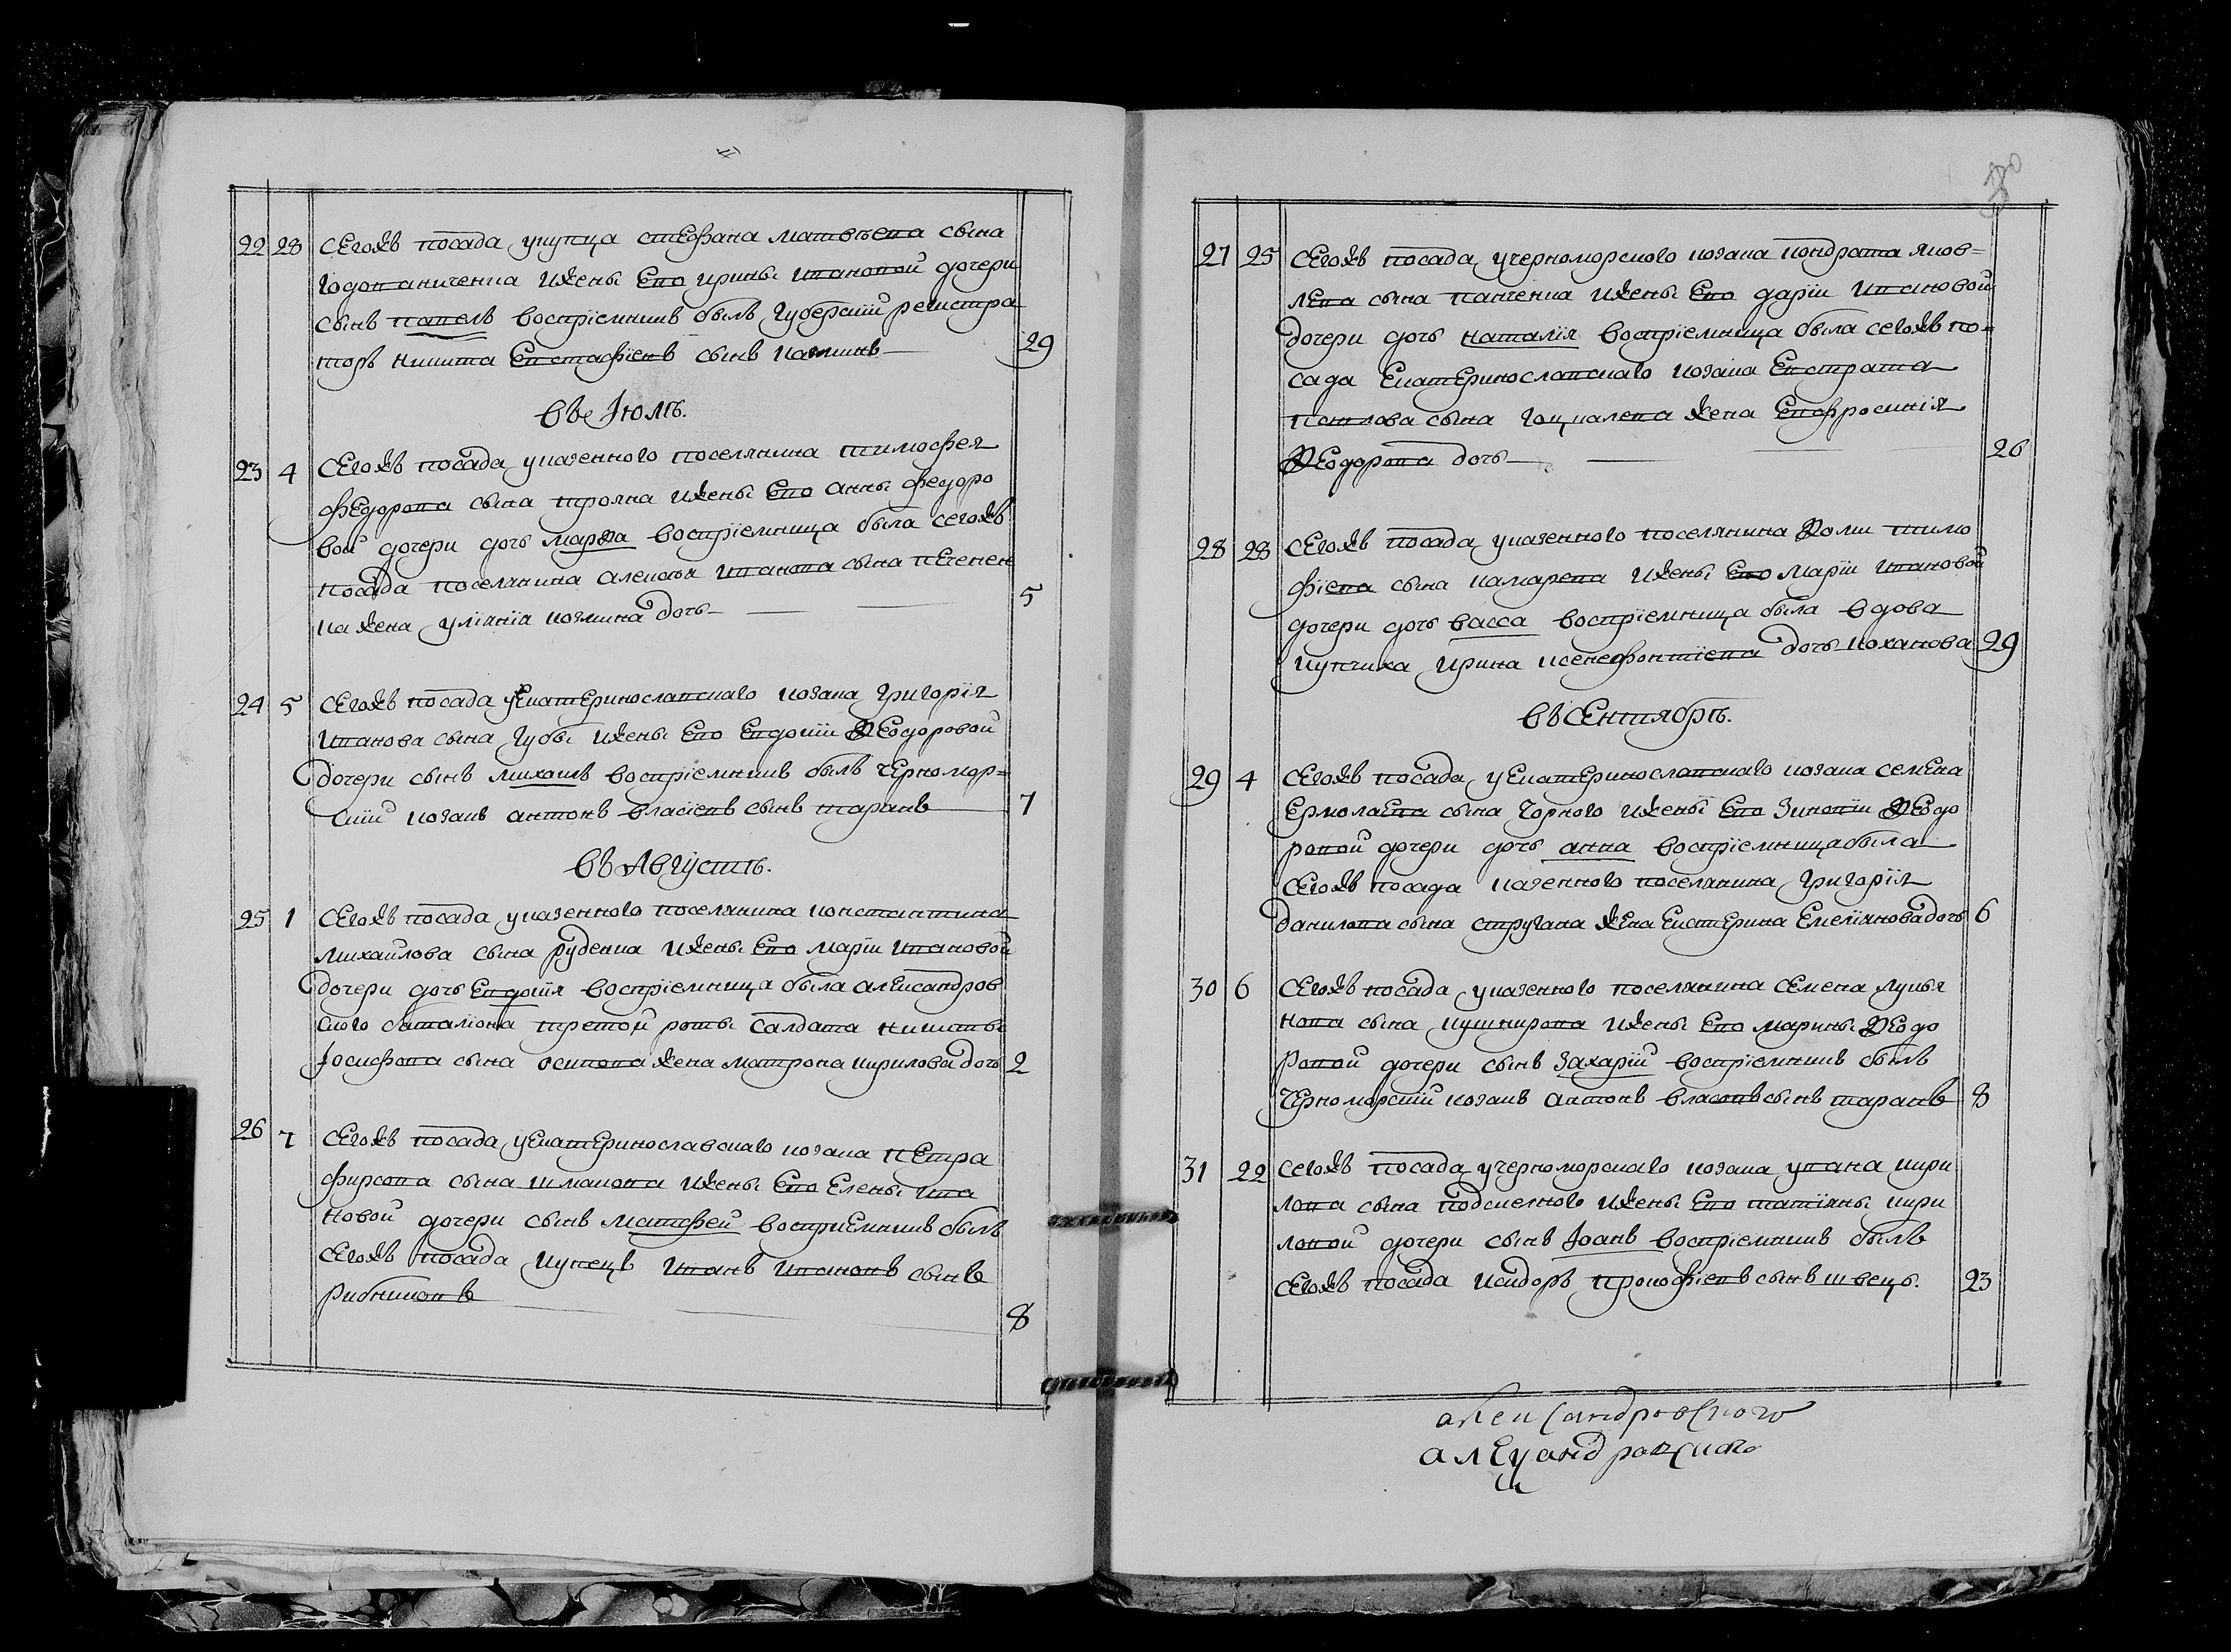 22 28 Сегожъ посада укупца стефана матвѣева сына
Годованиченка ижены Его ирины ивановой дочери
сынъ павелъ воспріемникъ былъ губерскій регистра
торъ никита Евстафіевъ сынъ 29
въ Іюлѣ.
23 4 Сегожъ посада указенного поселянина тимофея
федорова сына трояна ижены Его анны федоро
вой дочери дочь марѳа воспріемница была сегожъ
посада поселянина алексѣя иванова сына печенен
ка жена уліянія козмина дочь 5
24 5 Сегожъ посада уЕкатеринославскаго козака григорія
иванова сына губы ижены Его Евдокіи Ѳеодоровой
дочери сынъ михаилъ воспріемникъ былъ черномор=
скій козакъ антонъ власіевъ сынъ таранъ 7
въ Августѣ.
25 1 Сегожъ посада указенного поселянина константина
михайлова сына руденка ижены Его маріи ивановой
дочери дочь Евдокія воспріемница была александров
ского баталіона третой роты салдата никиты
Іосифова сына осипова жена матрона кирилова дочь 2
26 7 Сегожъ посада уЕкатеринославскаго козака петра
фирсова сына шмакова ижены Его Елены ива
новой дочери сынъ матфей восприемникъ былъ
сегожъ посада купецъ иванъ ивановъ сынъ
рибниковъ 8
27 25 Сегожъ посада учерноморского козака кондрата яков=
лева сына панченка ижены Его даріи ивановой
дочери дочь наталія воспріемница была сегожъ по=
сада Екатеринославскаго козака Евстрата
павлова сына гоцкалева жена Евфросинія
Ѳеодорова дочь 26
28 28 Сегожъ посада указенного поселянина Ѳомы тимо
фіева сына камарева ижены Его маріи ивановой
дочери дочь васса воспріемница была вдова
купчиха ирина ксенефонтіева дочь коханова 29
въ Сентябрѣ.
29 4 Сегожъ посада уЕкатеринославскаго козака семена
Ермолаева сына Чорного ижены Его Зиновіи Ѳеодо
ровой дочери дочь анна воспріемница была
сегожъ посада казенного поселянина григорія
данилова сына стругана жена Екатерина Емеліянова дочь 6
30 6 Сегожъ посада указенного поселянина семена лукья
нова сына кушнирова ижены Его марины Ѳеодо
ровой дочери сынъ захарій воспріемникъ былъ
Черноморскій козакъ антонъ власовъ сынъ таранъ 8
31 22 сегожъ посада учерноморскаго козака увана кири
лова сына подсметного ижены Его татіяны кири
ловой дочери сынъ Іоанъ воспріемникъ былъ
сегожъ посада исидоръ прокофіевъ сынъ швецъ. 23
александровского